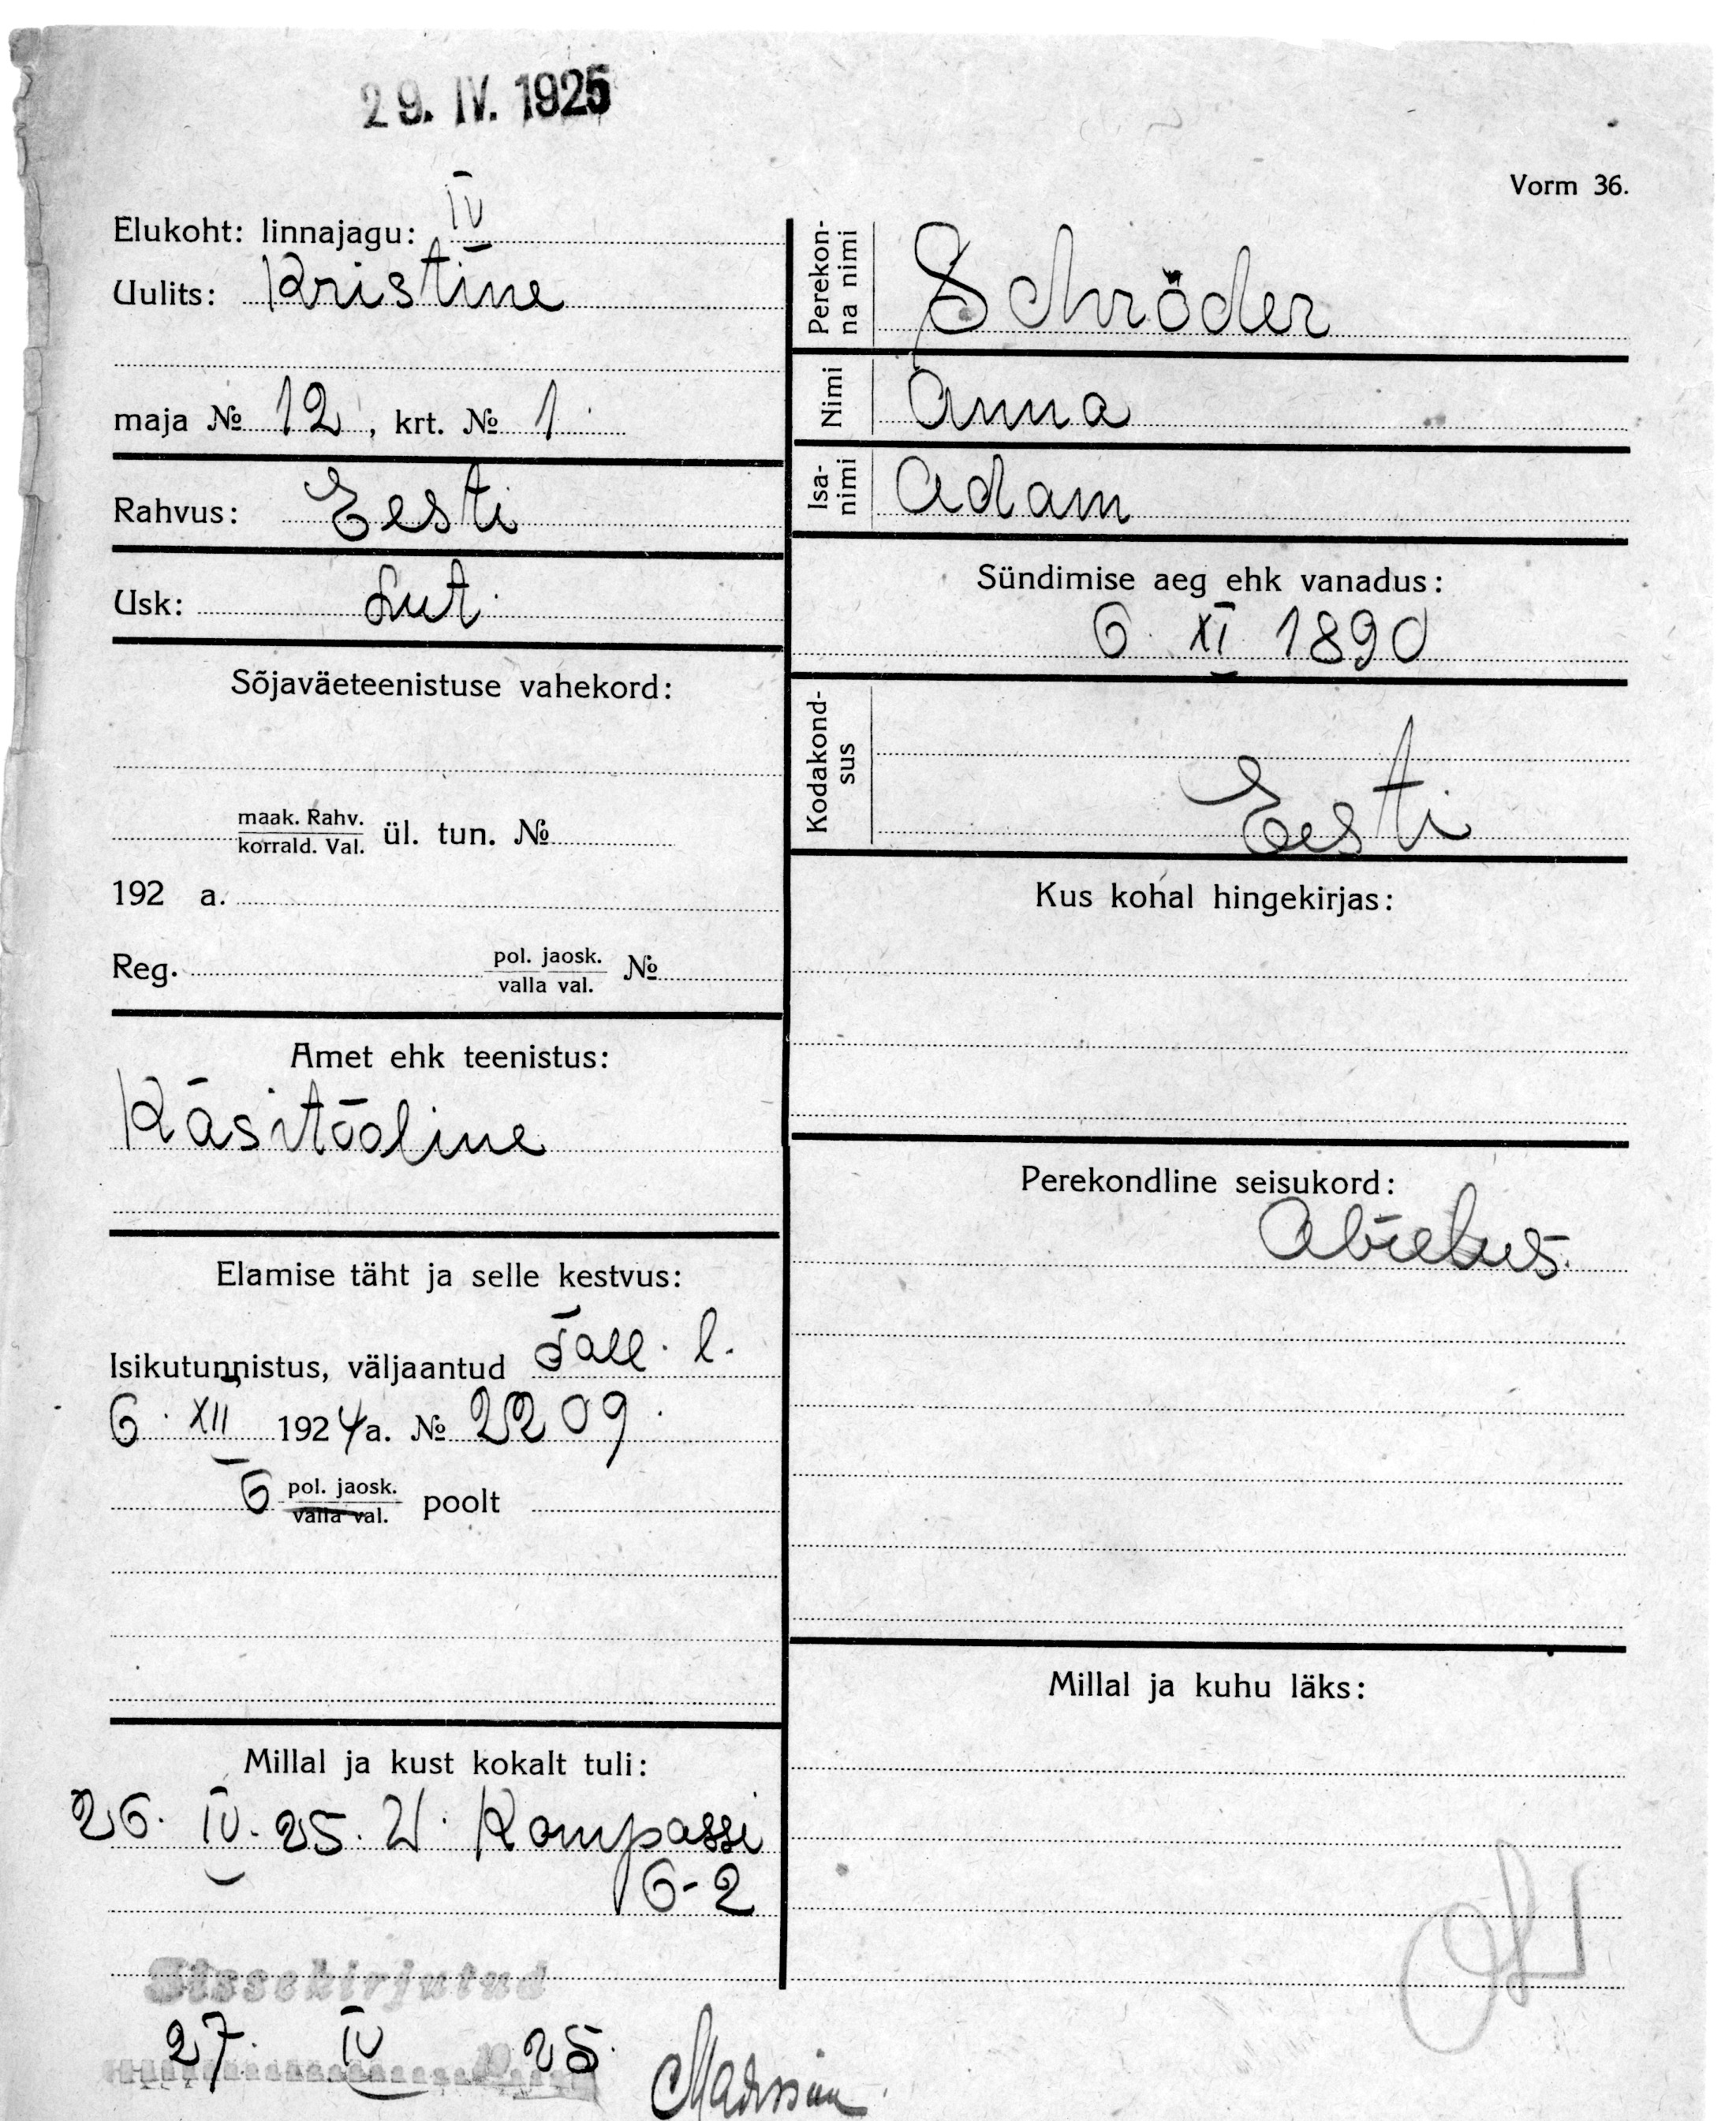 29. IV. 1925
Vorm 36.
Elukoht: linnajagu: IV
Uulits: Kristine
maja № 12, krt. № 1.
Rahvus: Eesti
Usk: Lut.
Sõjaväeteenistuse vahekord:
maak. Rahv.
korrald. Val. ül. tun. №
192 a.
Reg. pol. jaosk. №
valla val.
Amet ehk teenistus:
Käsitööline
Elamise täht ja selle kestvus:
Isikutunnistus, väljaantud Tall. l.
6. XII 1924 a. № 2209.
6 pol. jaosk. poolt
valla val.
Millal ja kust kokalt tuli:
26. IV. 25. V. Kompassi
6-2
Sissekirjutud
27. IV 25.
Perekon-
na nimi Schröder
Nimi Anna
Isa-
nimi Adam
Sündimise aeg ehk vanadus:
6. XI 1890
Kodakond-
sus Eesti
Kus kohal hingekirjas:
Perekondline seisukord:
Abielus.
Millal ja kuhu läks: